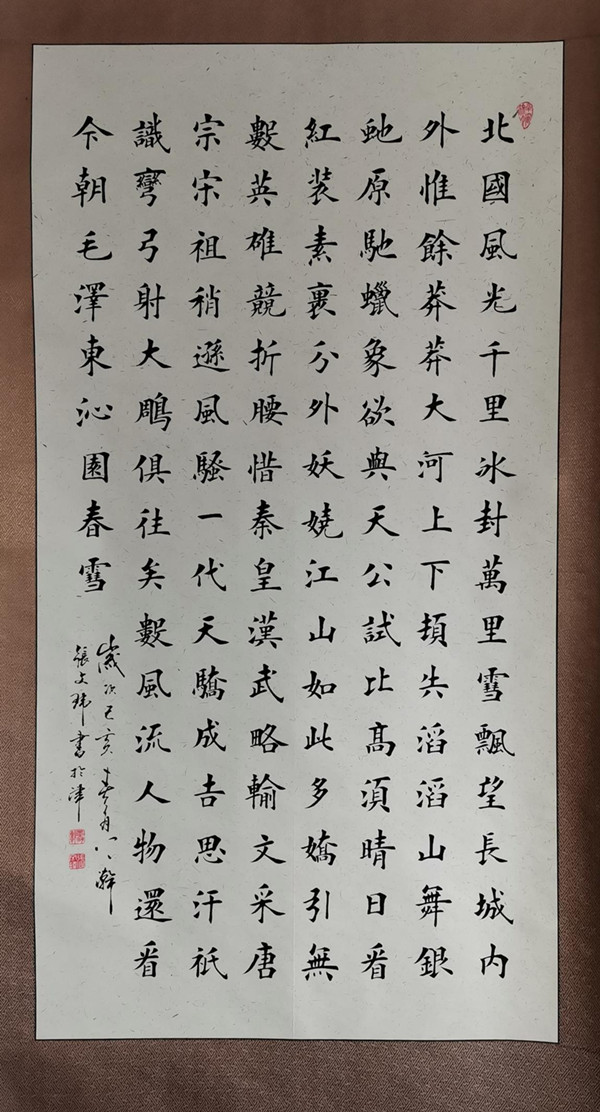 北國風光千里冰封萬里雪飄望長城内
外惟餘莽莽大河上下頓失滔滔山舞銀
虵原馳蠟象欲與天公試比高須晴日看
紅装素裹分外妖嬈江山如此多嬌引無
數英雄競折腰惜秦皇漢武略輸文采唐
宗宋祖稍遜風騷一代天驕成吉思汗祇
識彎弓射大鵰俱往矣數風流人物還看
今朝毛澤東沁園春雪
歲次己亥春月
張文瑋書於津